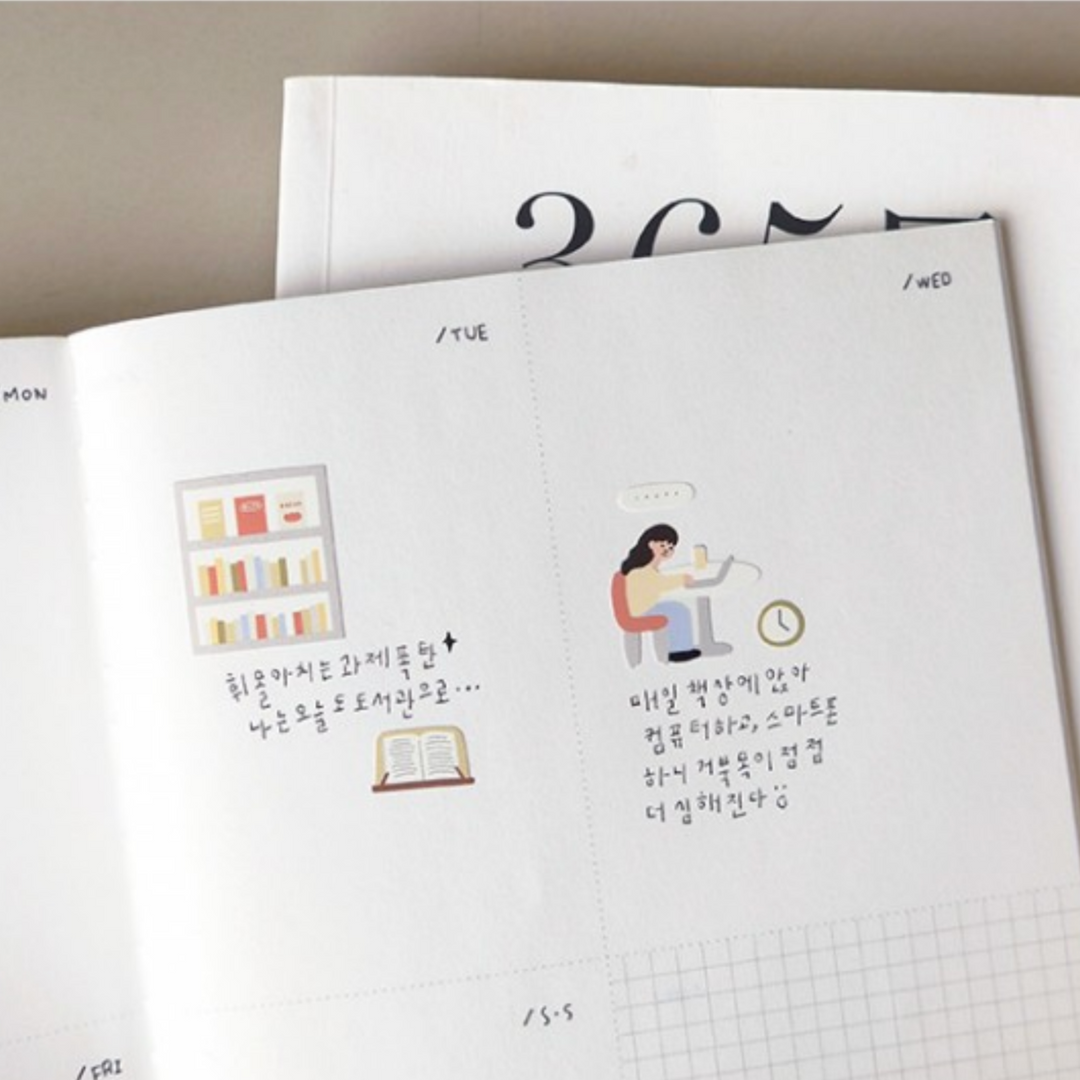 365
/WED
/TUE
MON
휘몰아치는 과제폭탄
나는 오늘도 도서관으로...
매일 책상에 앉아
컴퓨터하고, 스마트폰
하니 거북목이 점점
더 심해진다
/S·S
/FRI